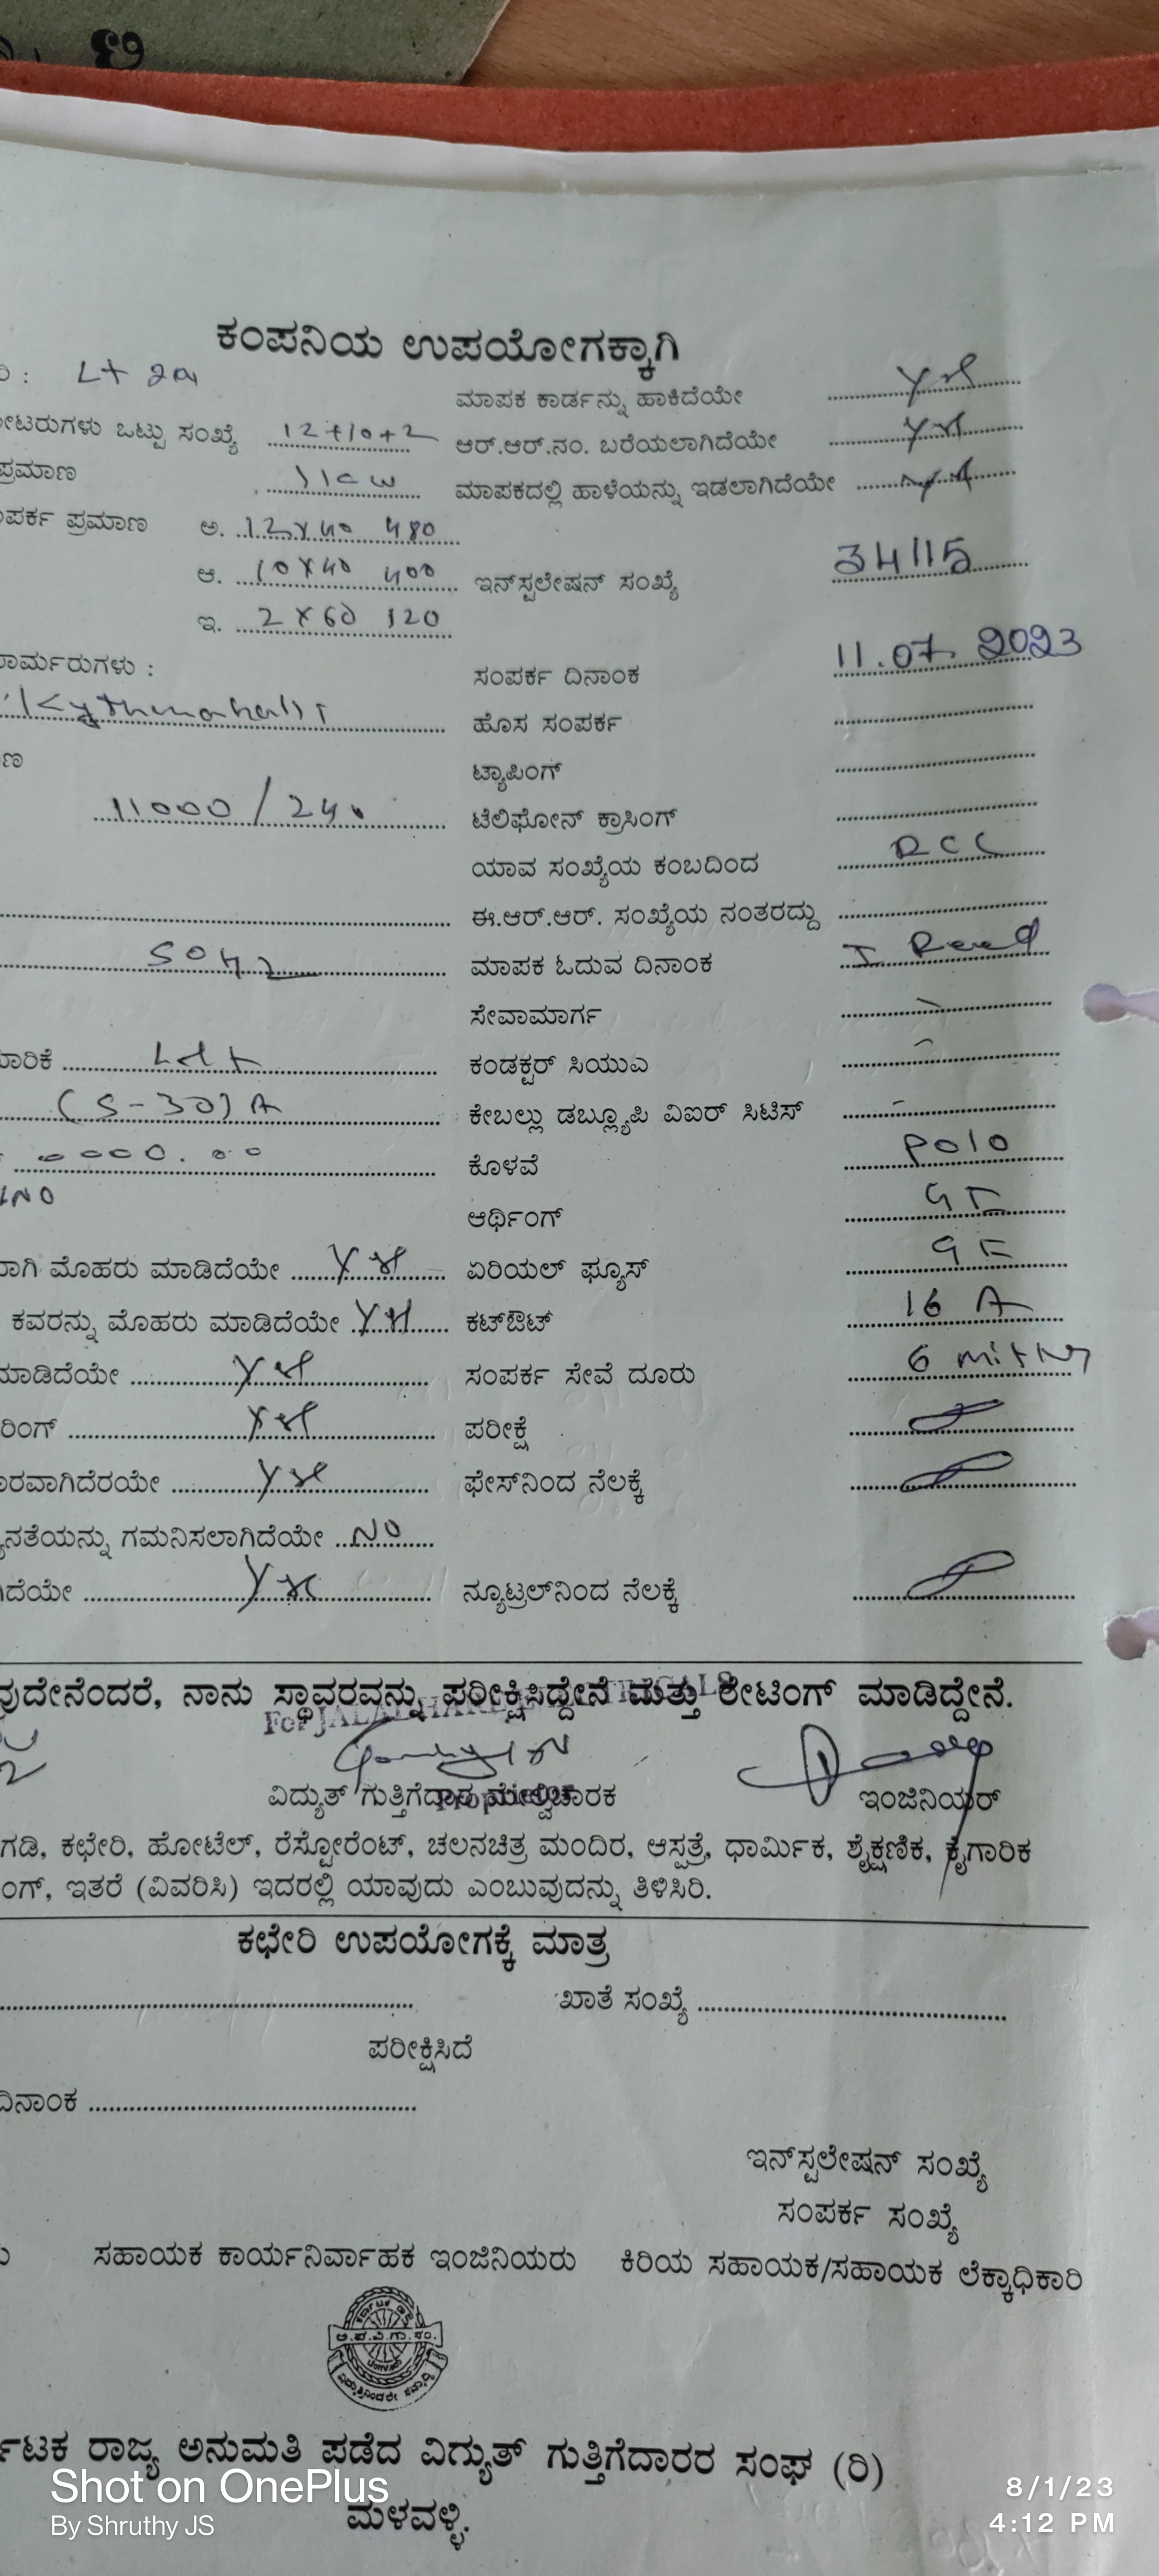 ಕಂಪನಿಯ ಉಪಯೋಗಕ್ಕಾಗಿ
ರಿ : Lt 2a ಮಾಪಕ ಕಾರ್ಡನ್ನು ಹಾಕಿದೆಯೇ Yes
ೀಟರುಗಳು ಒಟ್ಟು ಸಂಖ್ಯೆ 12+10+2 ಆರ್.ಆರ್.ನಂ. ಬರೆಯಲಾಗಿದೆಯೇ Yes
ಪ್ರಮಾಣ 1 kw ಮಾಪಕದಲ್ಲಿ ಹಾಳೆಯನ್ನು ಇಡಲಾಗಿದೆಯೇ Yes
ಪರ್ಕ ಪ್ರಮಾಣ ಅ. 12x40 480
ಆ. 10x40 400 ಇನ್‌ಸ್ಟಲೇಷನ್ ಸಂಖ್ಯೆ 34115
ಇ. 2x60 120
ಾರ್ಮರುಗಳು : ಸಂಪರ್ಕ ದಿನಾಂಕ 11.07.2023
ಹೊಸ ಸಂಪರ್ಕ
ಟ್ಯಾಪಿಂಗ್
11000/240 ಟೆಲಿಫೋನ್ ಕ್ರಾಸಿಂಗ್
ಯಾವ ಸಂಖ್ಯೆಯ ಕಂಬದಿಂದ RCC
ಈ.ಆರ್.ಆರ್. ಸಂಖ್ಯೆಯ ನಂತರದ್ದು
50Hz ಮಾಪಕ ಓದುವ ದಿನಾಂಕ I Reed
ಸೇವಾಮಾರ್ಗ
ಾರಿಕೆ L&T ಕಂಡಕ್ಟರ್ ಸಿಯುಎ
(5-30)A ಕೇಬಲ್ಲು ಡಬ್ಲ್ಯೂಪಿ ವಿಐರ್ ಸಿಟಿಸ್
0000.00 ಕೊಳವೆ Polo
ಆರ್ಥಿಂಗ್
ಾಗಿ ಮೊಹರು ಮಾಡಿದೆಯೇ Yes ಏರಿಯಲ್ ಫ್ಯೂಸ್
ಕವರನ್ನು ಮೊಹರು ಮಾಡಿದೆಯೇ Yes ಕಟ್‌ಔಟ್ 16 A
ಮಾಡಿದೆಯೇ Yes ಸಂಪರ್ಕ ಸೇವೆ ದೂರು 6
ರಿಂಗ್ Yes ಪರೀಕ್ಷೆ
ಾರವಾಗಿದೆರಯೇ Yes ಫೇಸ್‌ನಿಂದ ನೆಲಕ್ಕೆ
ನತೆಯನ್ನು ಗಮನಿಸಲಾಗಿದೆಯೇ NO
ಿದೆಯೇ Yes ನ್ಯೂಟ್ರಲ್‌ನಿಂದ ನೆಲಕ್ಕೆ
ವುದೇನೆಂದರೆ, ನಾನು ಸ್ಥಾವರವನ್ನು ಪರೀಕ್ಷಿಸಿದ್ದೇನೆ ಮತ್ತು ರೇಟಿಂಗ್ ಮಾಡಿದ್ದೇನೆ.
ವಿದ್ಯುತ್ ಗುತ್ತಿಗೆದಾರ ಮೇಲ್ವಿಚಾರಕ ಇಂಜಿನಿಯರ್
ಗಡಿ, ಕಛೇರಿ, ಹೋಟೆಲ್, ರೆಸ್ಟೋರೆಂಟ್, ಚಲನಚಿತ್ರ ಮಂದಿರ, ಆಸ್ಪತ್ರೆ, ಧಾರ್ಮಿಕ, ಶೈಕ್ಷಣಿಕ, ಕೈಗಾರಿಕ
ಂಗ್, ಇತರೆ (ವಿವರಿಸಿ) ಇದರಲ್ಲಿ ಯಾವುದು ಎಂಬುವುದನ್ನು ತಿಳಿಸಿರಿ.
ಕಛೇರಿ ಉಪಯೋಗಕ್ಕೆ ಮಾತ್ರ
ಖಾತೆ ಸಂಖ್ಯೆ
ಪರೀಕ್ಷಿಸಿದೆ
ದಿನಾಂಕ
ಇನ್‌ಸ್ಟಲೇಷನ್ ಸಂಖ್ಯೆ
ಸಂಪರ್ಕ ಸಂಖ್ಯೆ
ಸಹಾಯಕ ಕಾರ್ಯನಿರ್ವಾಹಕ ಇಂಜಿನಿಯರು ಕಿರಿಯ ಸಹಾಯಕ/ಸಹಾಯಕ ಲೆಕ್ಕಾಧಿಕಾರಿ
ರ್ನಾಟಕ ರಾಜ್ಯ ಅನುಮತಿ ಪಡೆದ ವಿಧ್ಯುತ್ ಗುತ್ತಿಗೆದಾರರ ಸಂಘ (ರಿ)
ಮಳವಳ್ಳಿ.
Shot on OnePlus
By Shruthy JS
8/1/23
4:12 PM